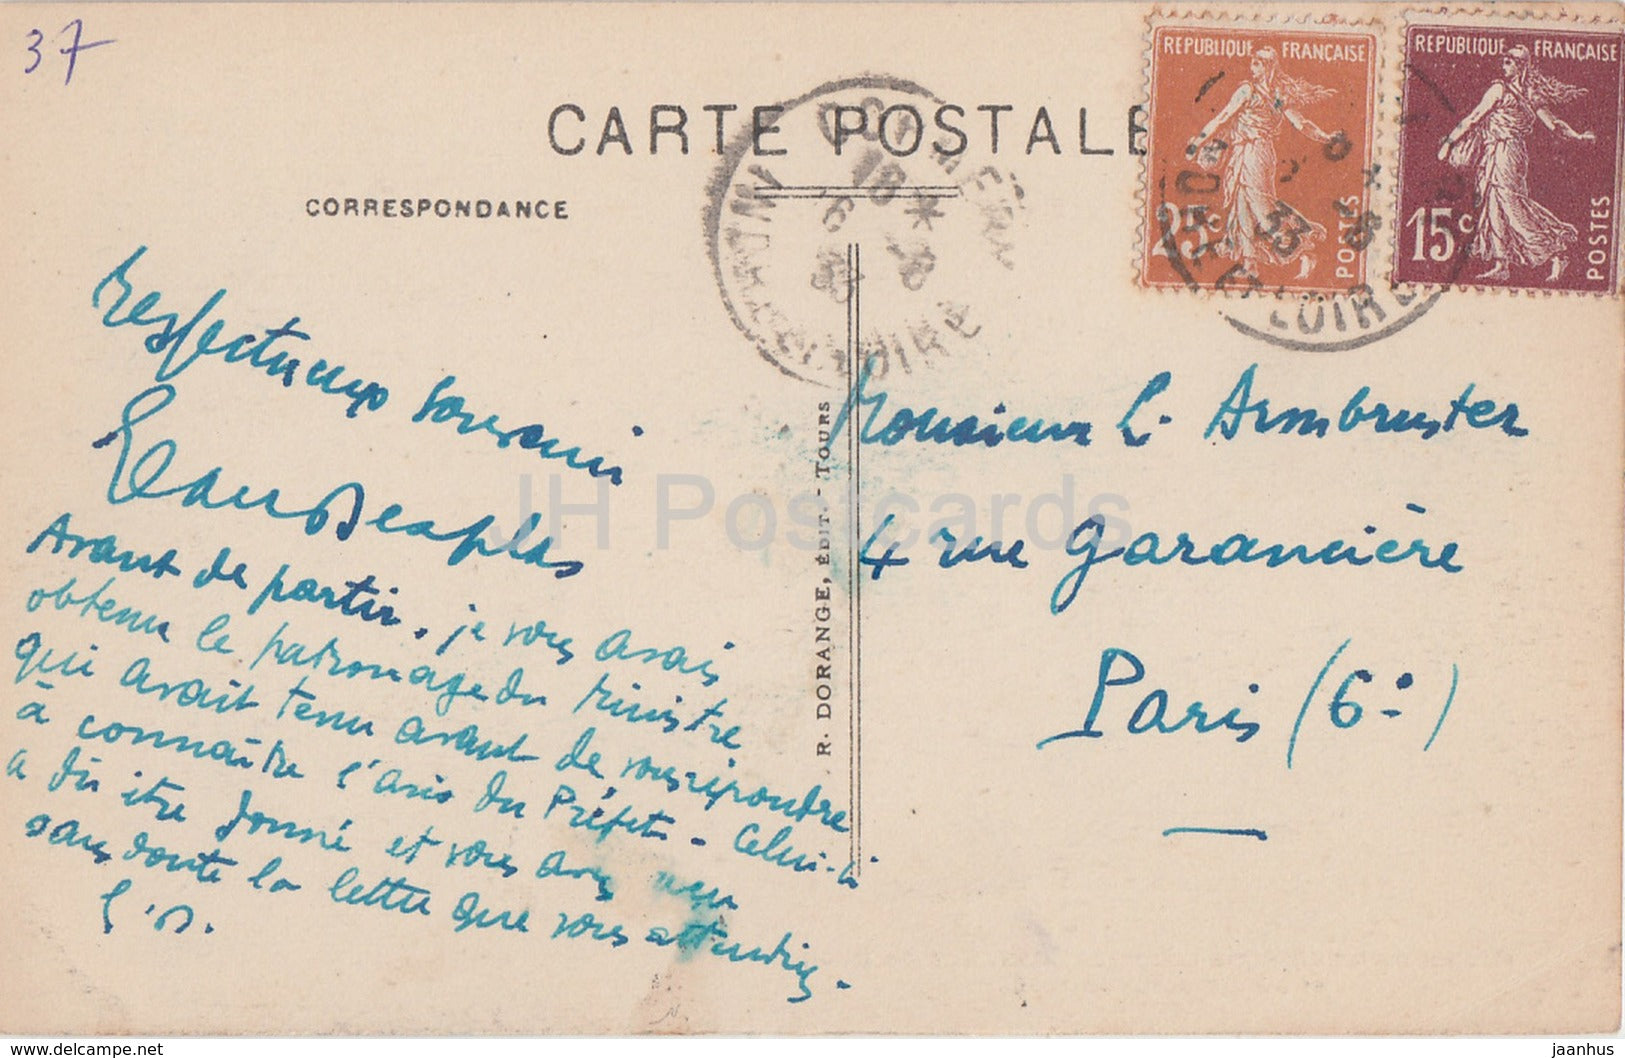 37
CARTE POSTALE
CORRESPONDANCE
REPUBLIQUE FRANÇAISE
25c
POSTES
REPUBLIQUE FRANÇAISE
15c
POSTES
18 *
6 -8
33
INDRE ET LOIRE
Respectueux souvenir
Avant de partir, je vous avais
obtenu le patronage du Ministre
qui avait tenu avant de vous répondre
à connaître l'avis du Préfet - Celui-ci
a dû être donné et vous avez reçu
sans doute la lettre que vous attendiez.
Monsieur L. Armbruster
4 rue Garancière
Paris (6e)
R. DORANGE, ÉDIT. - TOURS
JH Postcards
www.delcampe.net
jaanhus